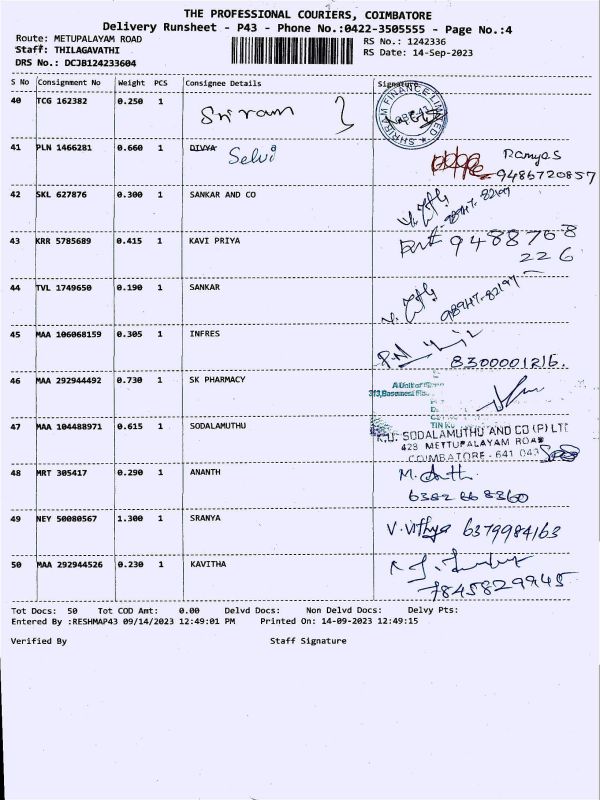 THE PROFESSIONAL COURIERS, COIMBATORE
Delivery Runsheet - P43 - Phone No.:0422-3505555 - Page No.:4
Route: METUPALAYAM ROAD RS No.: 1242336
Staff: THILAGAVATHI RS Date: 14-Sep-2023
DRS No.: DCJB124233604
S No Consignment No Weight PCS Consignee Details Signature
40 TCG 162382 0.250 1 Sriram SHRIRAM FINANCE LIMITED
41 PLN 1466281 0.660 1 DIVYA Selvi Ramya S
9486720857
42 SKL 627876 0.300 1 SANKAR AND CO 98947-82197
43 KRR 5785689 0.415 1 KAVI PRIYA 9488768
226
44 TVL 1749650 0.190 1 SANKAR 98947-82197
45 MAA 106068159 0.305 1 INFRES
8300001216.
46 MAA 292944492 0.730 1 SK PHARMACY A Unit of
313, Basement
TIN
47 MAA 104488971 0.615 1 SODALAMUTHU K.U. SODALAMUTHU AND CO (P) LTD
423 METTUPALAYAM ROAD
COIMBATORE - 641 043
48 MRT 305417 0.290 1 ANANTH M.
6382868360
49 NEY 50080567 1.300 1 SRANYA V. Vithya 6379984163
50 MAA 292944526 0.230 1 KAVITHA
7845829945
Tot Docs: 50 Tot COD Amt: 0.00 Delvd Docs: Non Delvd Docs: Delvy Pts:
Entered By :RESHMAP43 09/14/2023 12:49:01 PM Printed On: 14-09-2023 12:49:15
Verified By Staff Signature